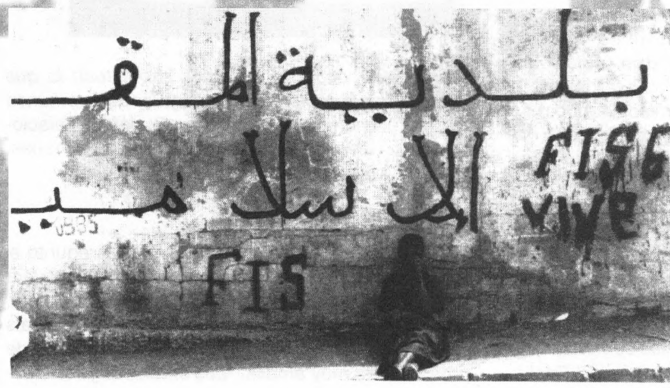 بلدية المقـ
الاسلاميـ
FIS6
vive
FIS